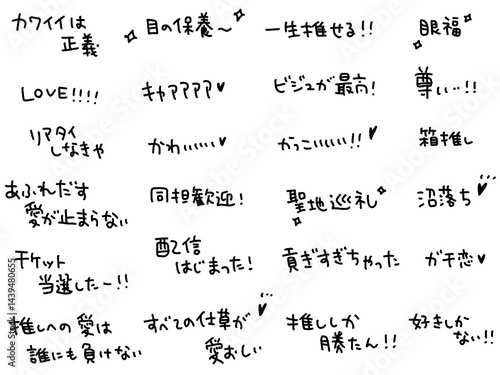 カワイイは
正義
目の保養〜
一生推せる!!
眼福
LOVE!!!!
キャアアアア♥
ビジュが最高!
尊い…!!
リアタイ
しなきゃ
かわいいいい♥
かっこいいい!!♥
箱推し
あふれだす
愛が止まらない
同担歓迎!
聖地巡礼
沼落ち♥
チケット
当選したー!!
配信
はじまった!
貢ぎすぎちゃった
ガチ恋♥
推しへの愛は
誰にも負けない
すべての仕草が
愛おしい
推ししか
勝たん!!
好きしか
ない!!
Adobe Stock | #1439480655